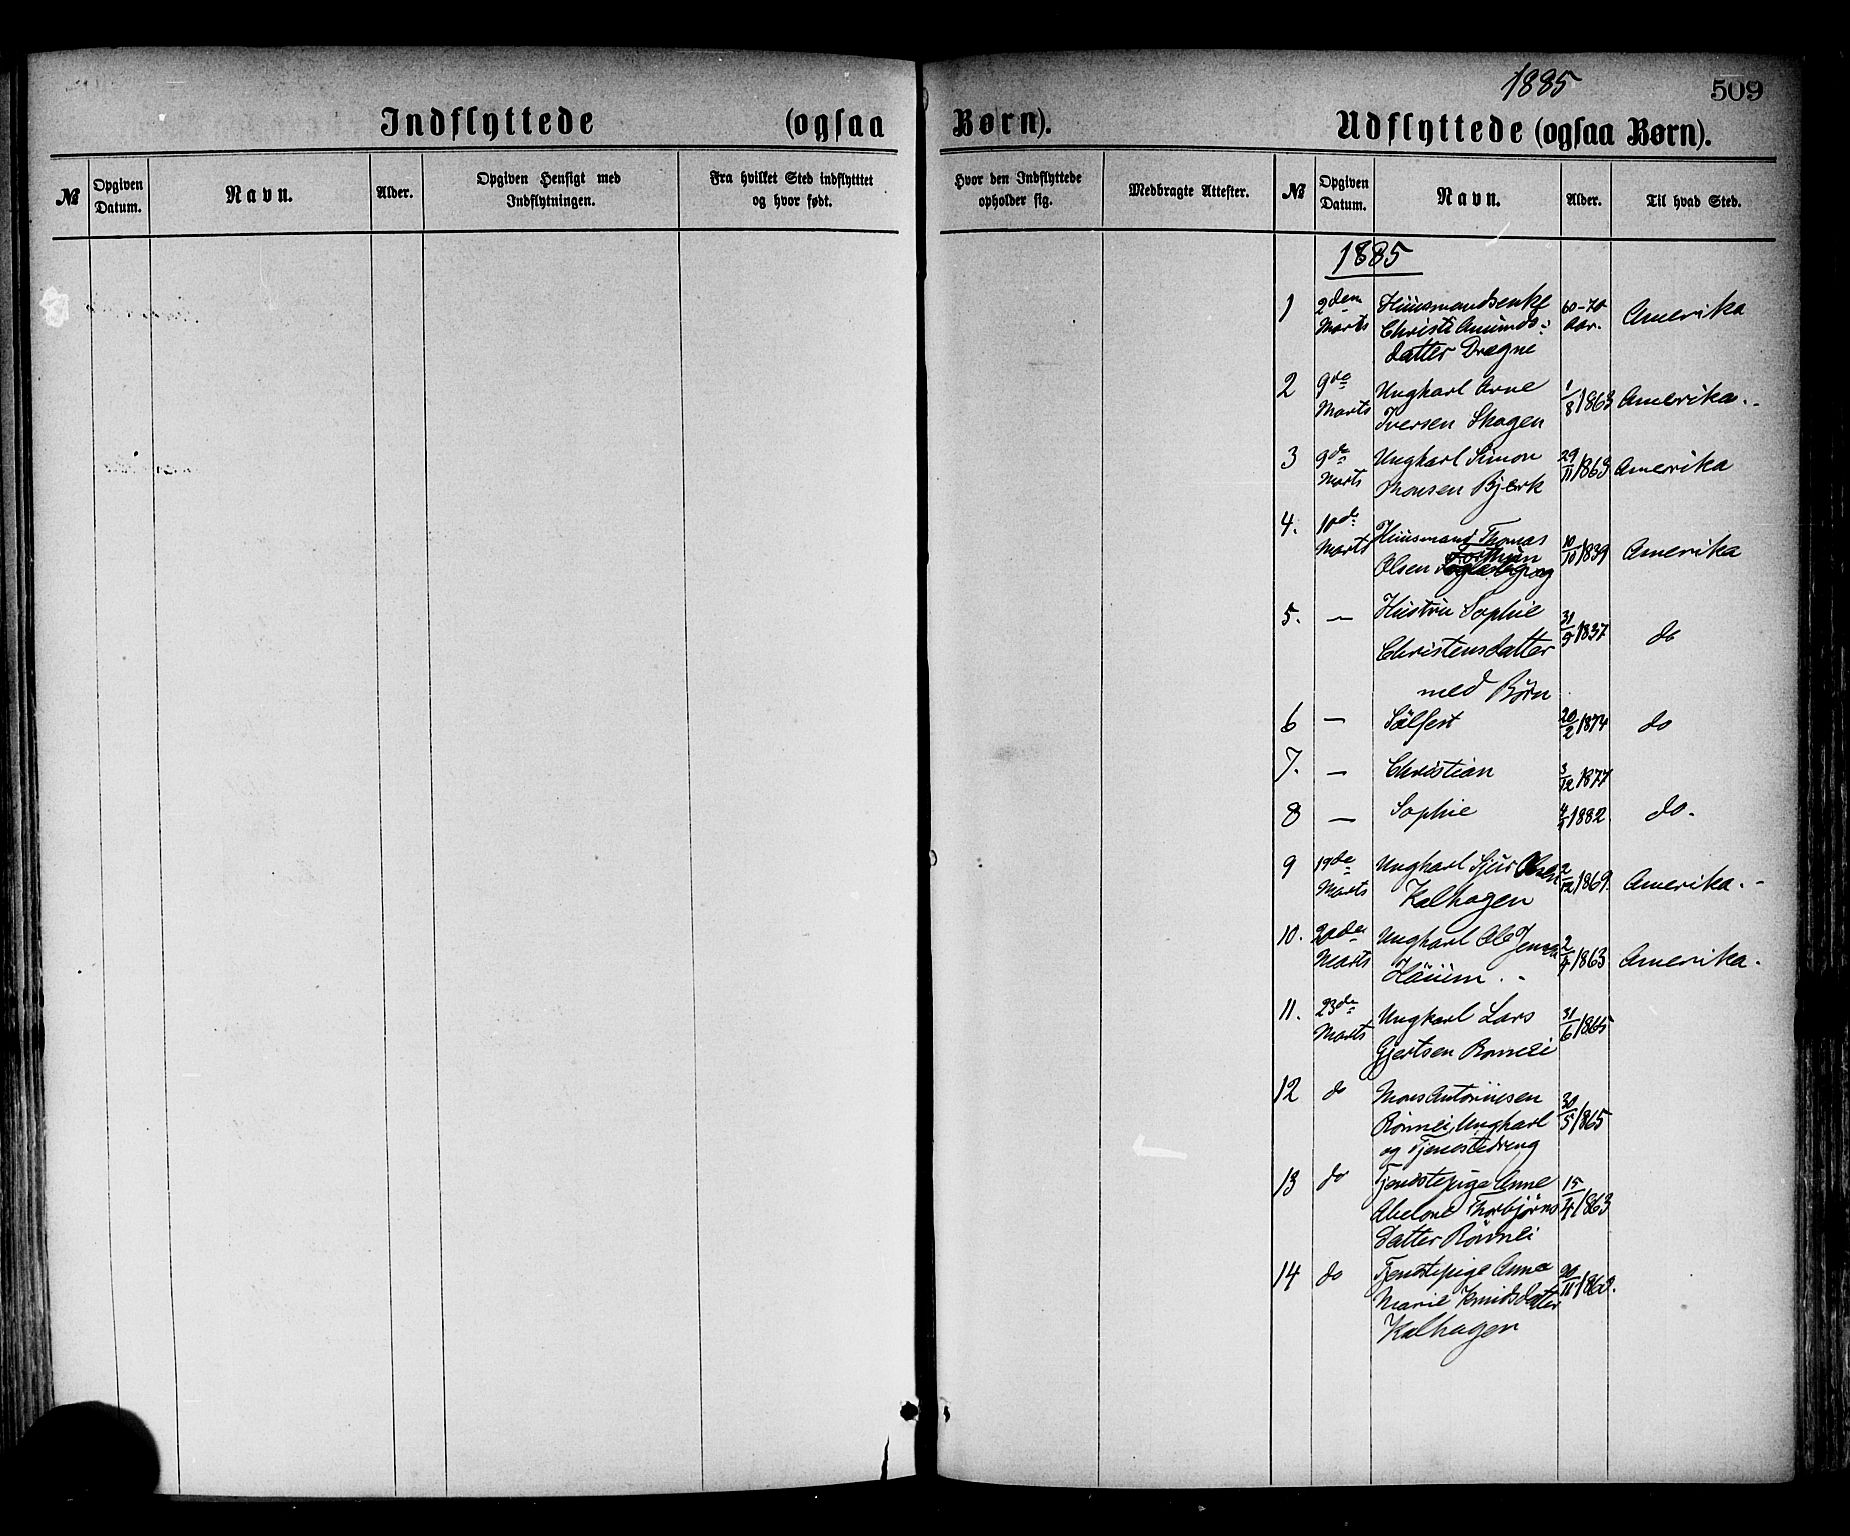 1885
509
Indflyttede (ogsaa Børn).
Udflyttede (ogsaa Børn).
№ Opgiven Datum. Navn. Alder. Opgiven Hensigt med Indflytningen. Fra hvilket Sted indflytttet og hvor født. Hvor den Indflyttede opholder sig. Medbragte Attester.
№ Opgiven Datum. Navn. Alder. Til hvad Sted.
1885
1 2den Marts Huusmandsenke 60-70 Aar. Amerika
Christi Amunds-
datter Drægni
2 9de Marts Ungkarl Arne 1/8 1863 Amerika.
Iversen Skagen
3 9de Marts Ungkarl Simon 29/11 1863 Amerika
Monsen Bjørk
4. 10de Marts Huusmand Thomas 10/10 1839 Amerika
Olsen
5. — Hustru Sophie 31/5 1837 do
Christensdatter
med Børn
6 — Sølfest 20/2 1874 do
7. — Christian 3/12 1877
8 — Sophie 4/4 1882 do.
9 19de Marts Ungkarl Sjur Olsen 2/12 1869. Amerika.
Kalhagen
10. 20de Marts Ungkarl Ole Jensen 2/4 1863 Amerika.
Hauum.
11. 23de Marts Ungkarl Lars 31/6 1865
Gjertsen Rønnei
12 do Mons Antonisen 30/5 1865
Rønnei, Ungkarl
og Tjenestedreng
13 do Tjenestepige Anne 15/4 1863
Abelone Thorbjørns
datter Rønnei
14 do Tjenestepige Anna
Marie Knudsdatter
Kalhagen